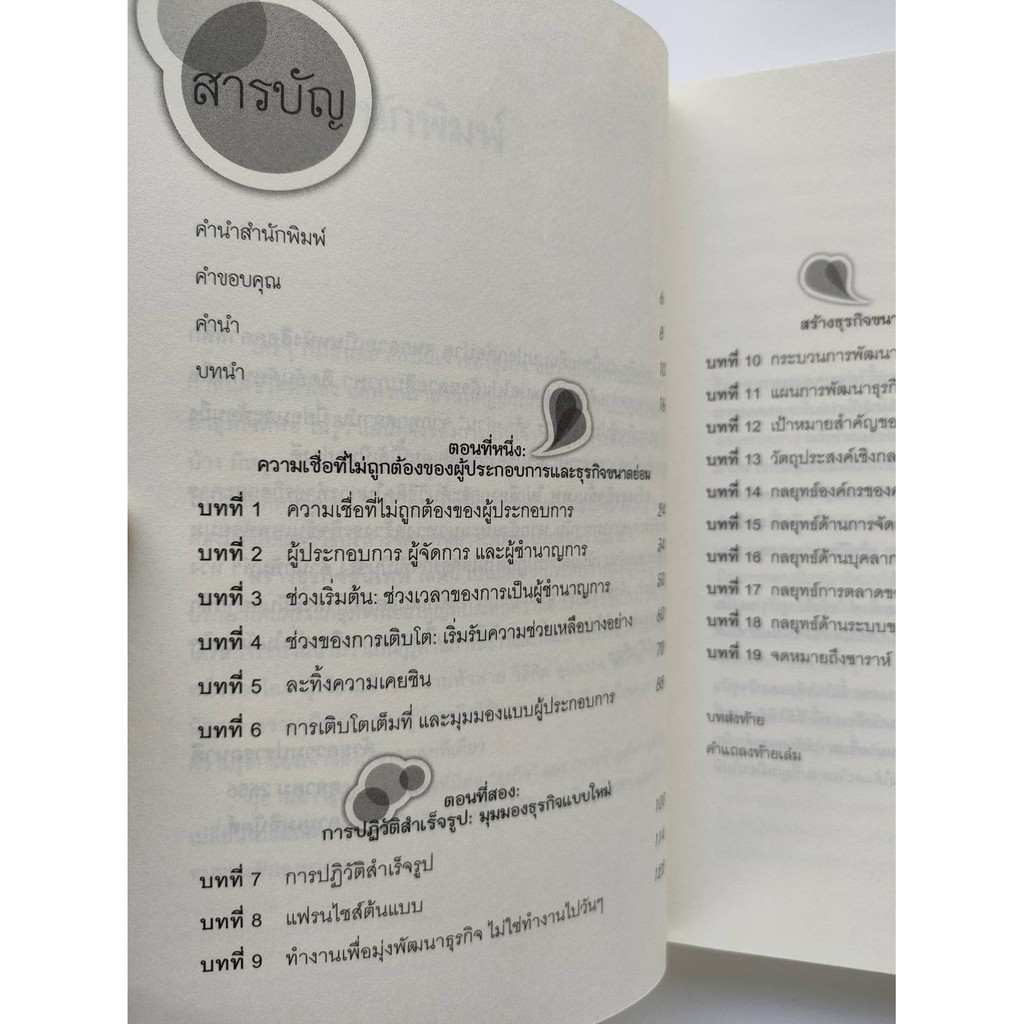 สารบัญ
คำนำสำนักพิมพ์
คำขอบคุณ 6
คำนำ 8
บทนำ 10
16
ตอนที่หนึ่ง:
ความเชื่อที่ไม่ถูกต้องของผู้ประกอบการและธุรกิจขนาดย่อม
บทที่ 1 ความเชื่อที่ไม่ถูกต้องของผู้ประกอบการ 24
บทที่ 2 ผู้ประกอบการ ผู้จัดการ และผู้ชำนาญการ 34
บทที่ 3 ช่วงเริ่มต้น: ช่วงเวลาของการเป็นผู้ชำนาญการ 50
บทที่ 4 ช่วงของการเติบโต: เริ่มรับความช่วยเหลือบางอย่าง 60
บทที่ 5 ละทิ้งความเคยชิน 70
บทที่ 6 การเติบโตเต็มที่ และมุมมองแบบผู้ประกอบการ 88
ตอนที่สอง:
การปฏิวัติสำเร็จรูป: มุมมองธุรกิจแบบใหม่
บทที่ 7 การปฏิวัติสำเร็จรูป 100
บทที่ 8 แฟรนไชส์ต้นแบบ 114
บทที่ 9 ทำงานเพื่อมุ่งพัฒนาธุรกิจ ไม่ใช่ทำงานไปวันๆ
สร้างธุรกิจขนา
บทที่ 10 กระบวนการพัฒนา
บทที่ 11 แผนการพัฒนาธุรกิ
บทที่ 12 เป้าหมายสำคัญขอ
บทที่ 13 วัตถุประสงค์เชิงกล
บทที่ 14 กลยุทธ์องค์กรของ
บทที่ 15 กลยุทธ์ด้านการจัด
บทที่ 16 กลยุทธ์ด้านบุคลาก
บทที่ 17 กลยุทธ์การตลาดข
บทที่ 18 กลยุทธ์ด้านระบบข
บทที่ 19 จดหมายถึงซาราห์
บทส่งท้าย
คำแถลงท้ายเล่ม